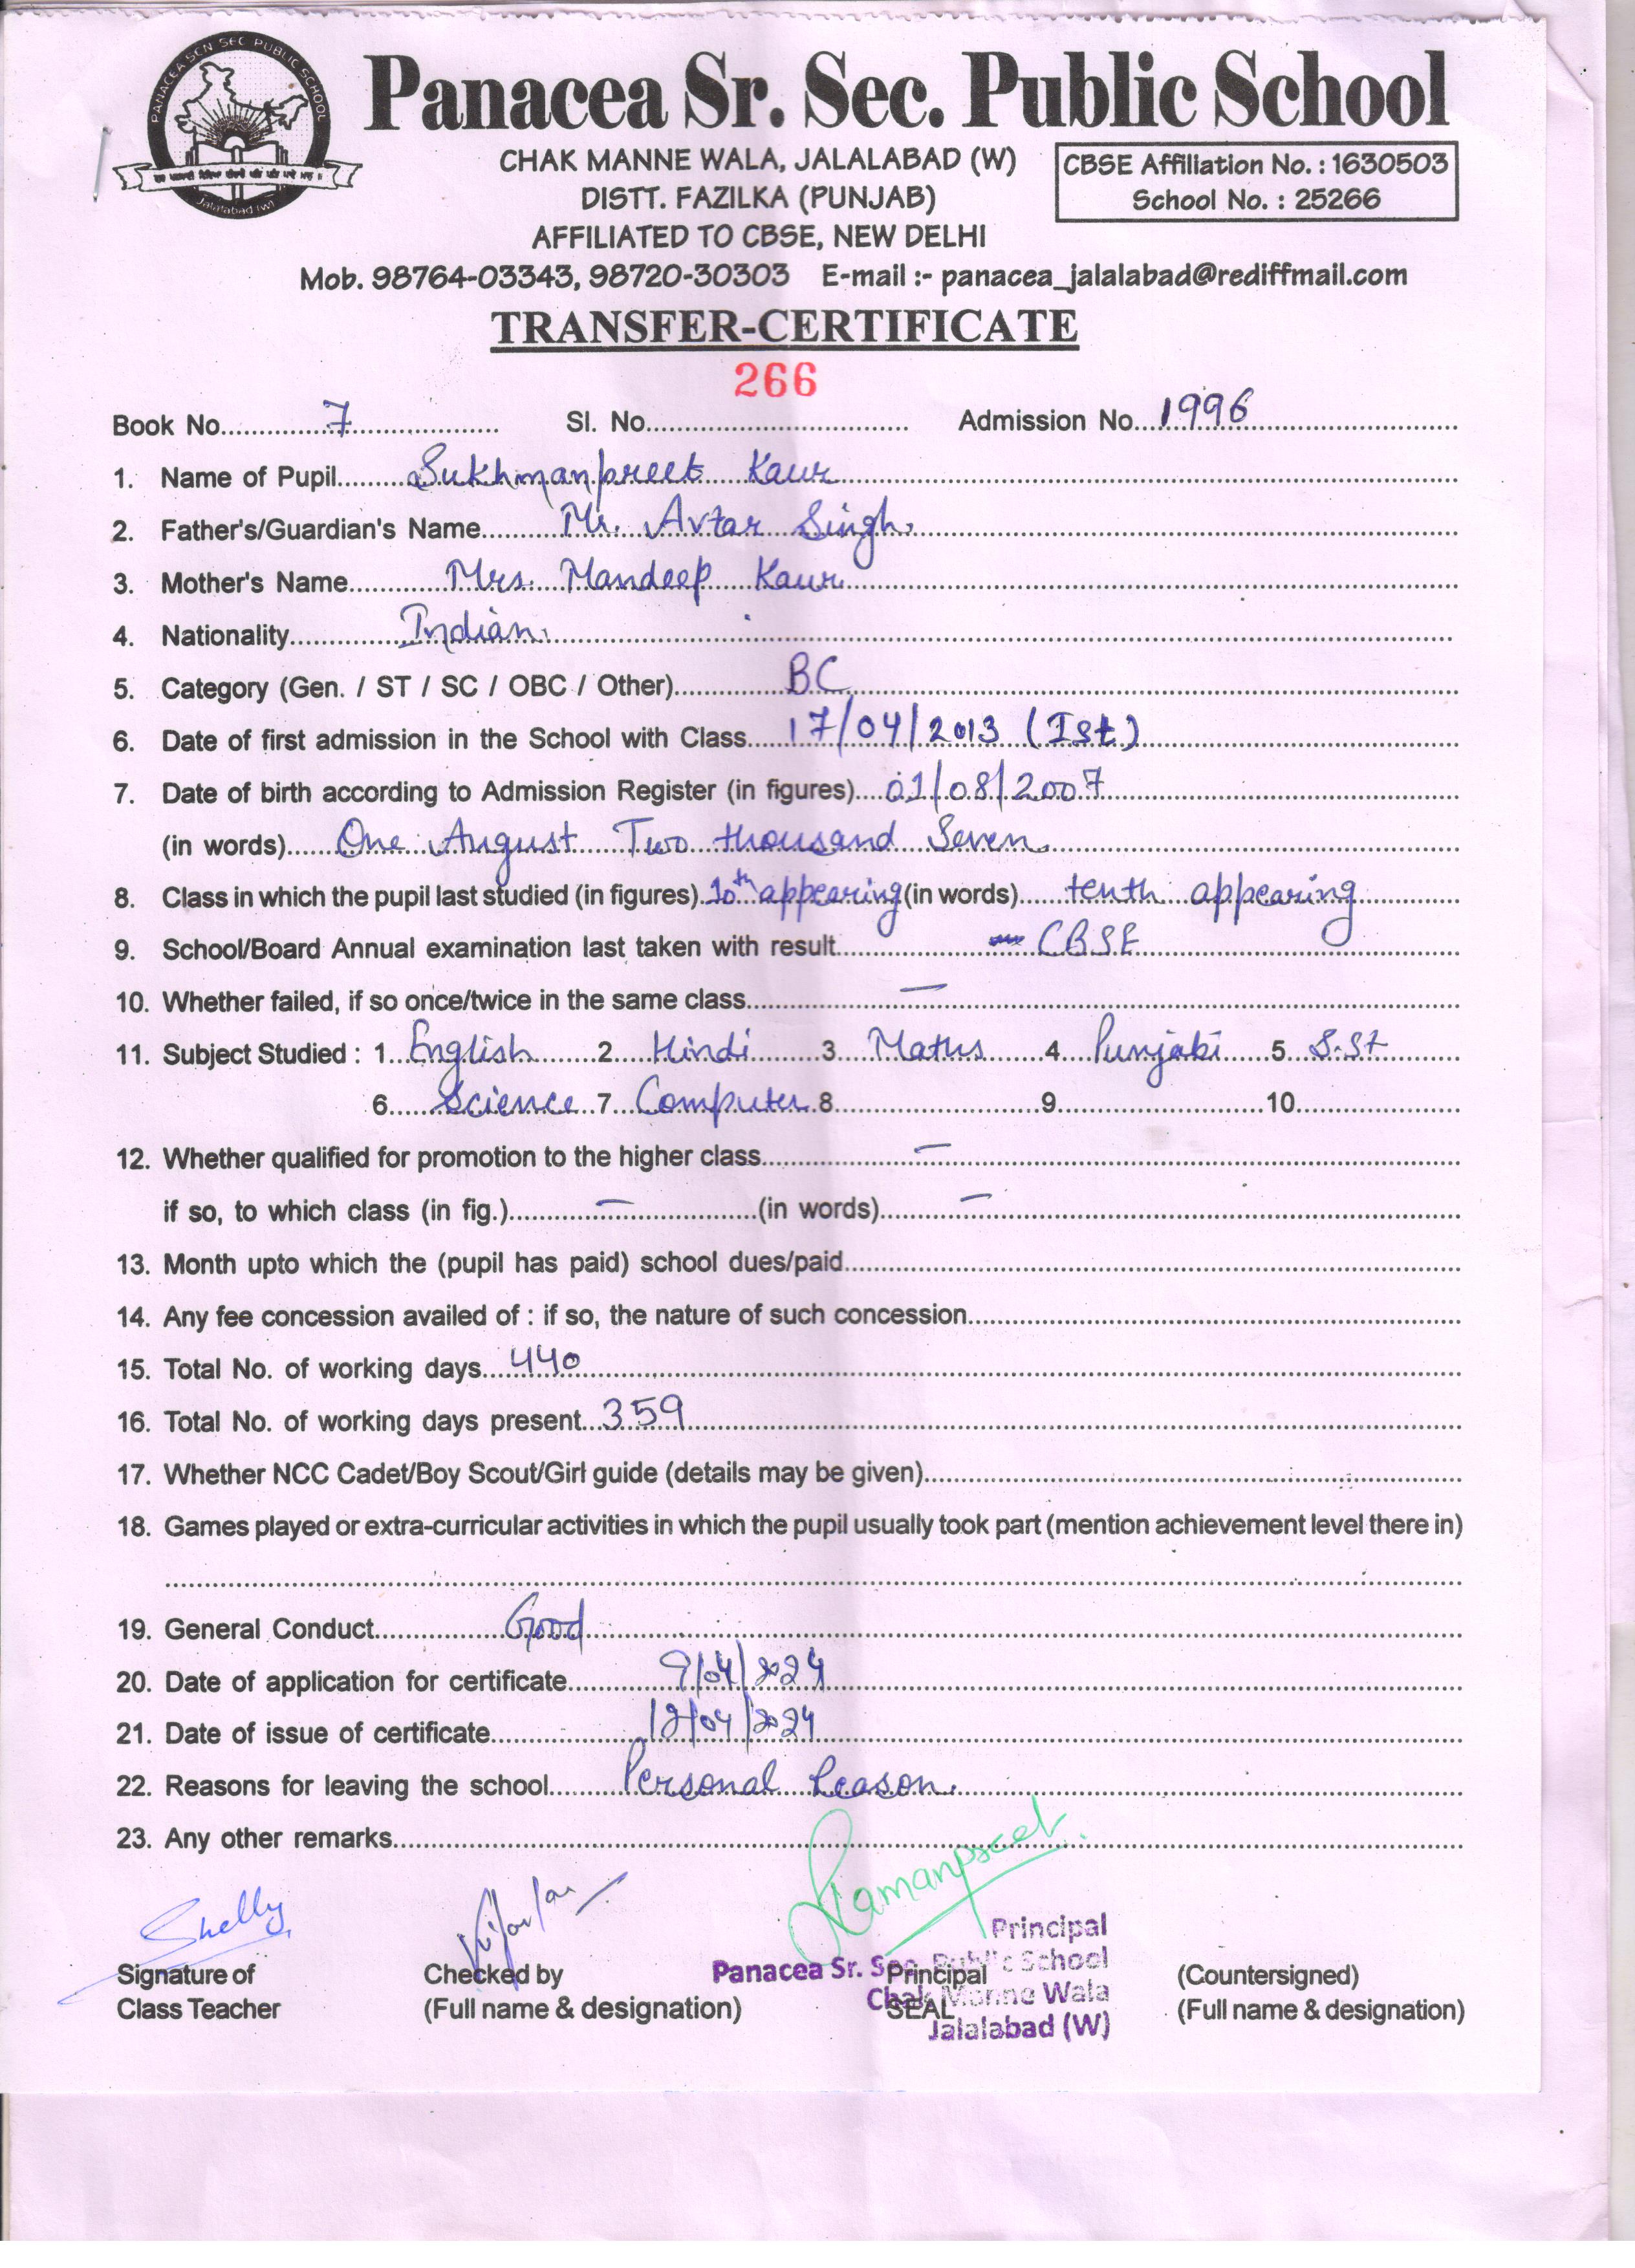 PANACEA SCN SEC PUBLIC SCHOOL
Jalalabad (W)
Panacea Sr. Sec. Public School
CHAK MANNE WALA, JALALABAD (W)
DISTT. FAZILKA (PUNJAB)
AFFILIATED TO CBSE, NEW DELHI
CBSE Affiliation No. : 1630503
School No. : 25266
Mob. 98764-03343, 98720-30303 E-mail :- panacea_jalalabad@rediffmail.com
TRANSFER-CERTIFICATE
266
Book No. 7 Sl. No. Admission No. 1996
1. Name of Pupil Sukhmanpreet Kaur
2. Father's/Guardian's Name Mr. Avtar Singh.
3. Mother's Name Mrs. Mandeep Kaur
4. Nationality Indian.
5. Category (Gen. / ST / SC / OBC / Other) BC
6. Date of first admission in the School with Class 17/04/2013 (Ist)
7. Date of birth according to Admission Register (in figures) 01/08/2007
(in words) One August Two thousand Seven
8. Class in which the pupil last studied (in figures) 10th appearing (in words) tenth appearing
9. School/Board Annual examination last taken with result CBSE
10. Whether failed, if so once/twice in the same class —
11. Subject Studied : 1 English 2 Hindi 3 Maths 4 Punjabi 5 S.St
6 Science 7 Computer 8 9 10
12. Whether qualified for promotion to the higher class —
if so, to which class (in fig.) — (in words) —
13. Month upto which the (pupil has paid) school dues/paid
14. Any fee concession availed of : if so, the nature of such concession
15. Total No. of working days 440
16. Total No. of working days present 359
17. Whether NCC Cadet/Boy Scout/Girl guide (details may be given)
18. Games played or extra-curricular activities in which the pupil usually took part (mention achievement level there in)
19. General Conduct Good
20. Date of application for certificate 9/04/2024
21. Date of issue of certificate 12/04/2024
22. Reasons for leaving the school Personal Reason.
23. Any other remarks
Shelly Ramanpreet
Principal
Panacea Sr. Sec. Public School
Chak Manne Wala
Jalalabad (W)
Signature of Checked by Principal (Countersigned)
Class Teacher (Full name & designation) SEAL (Full name & designation)